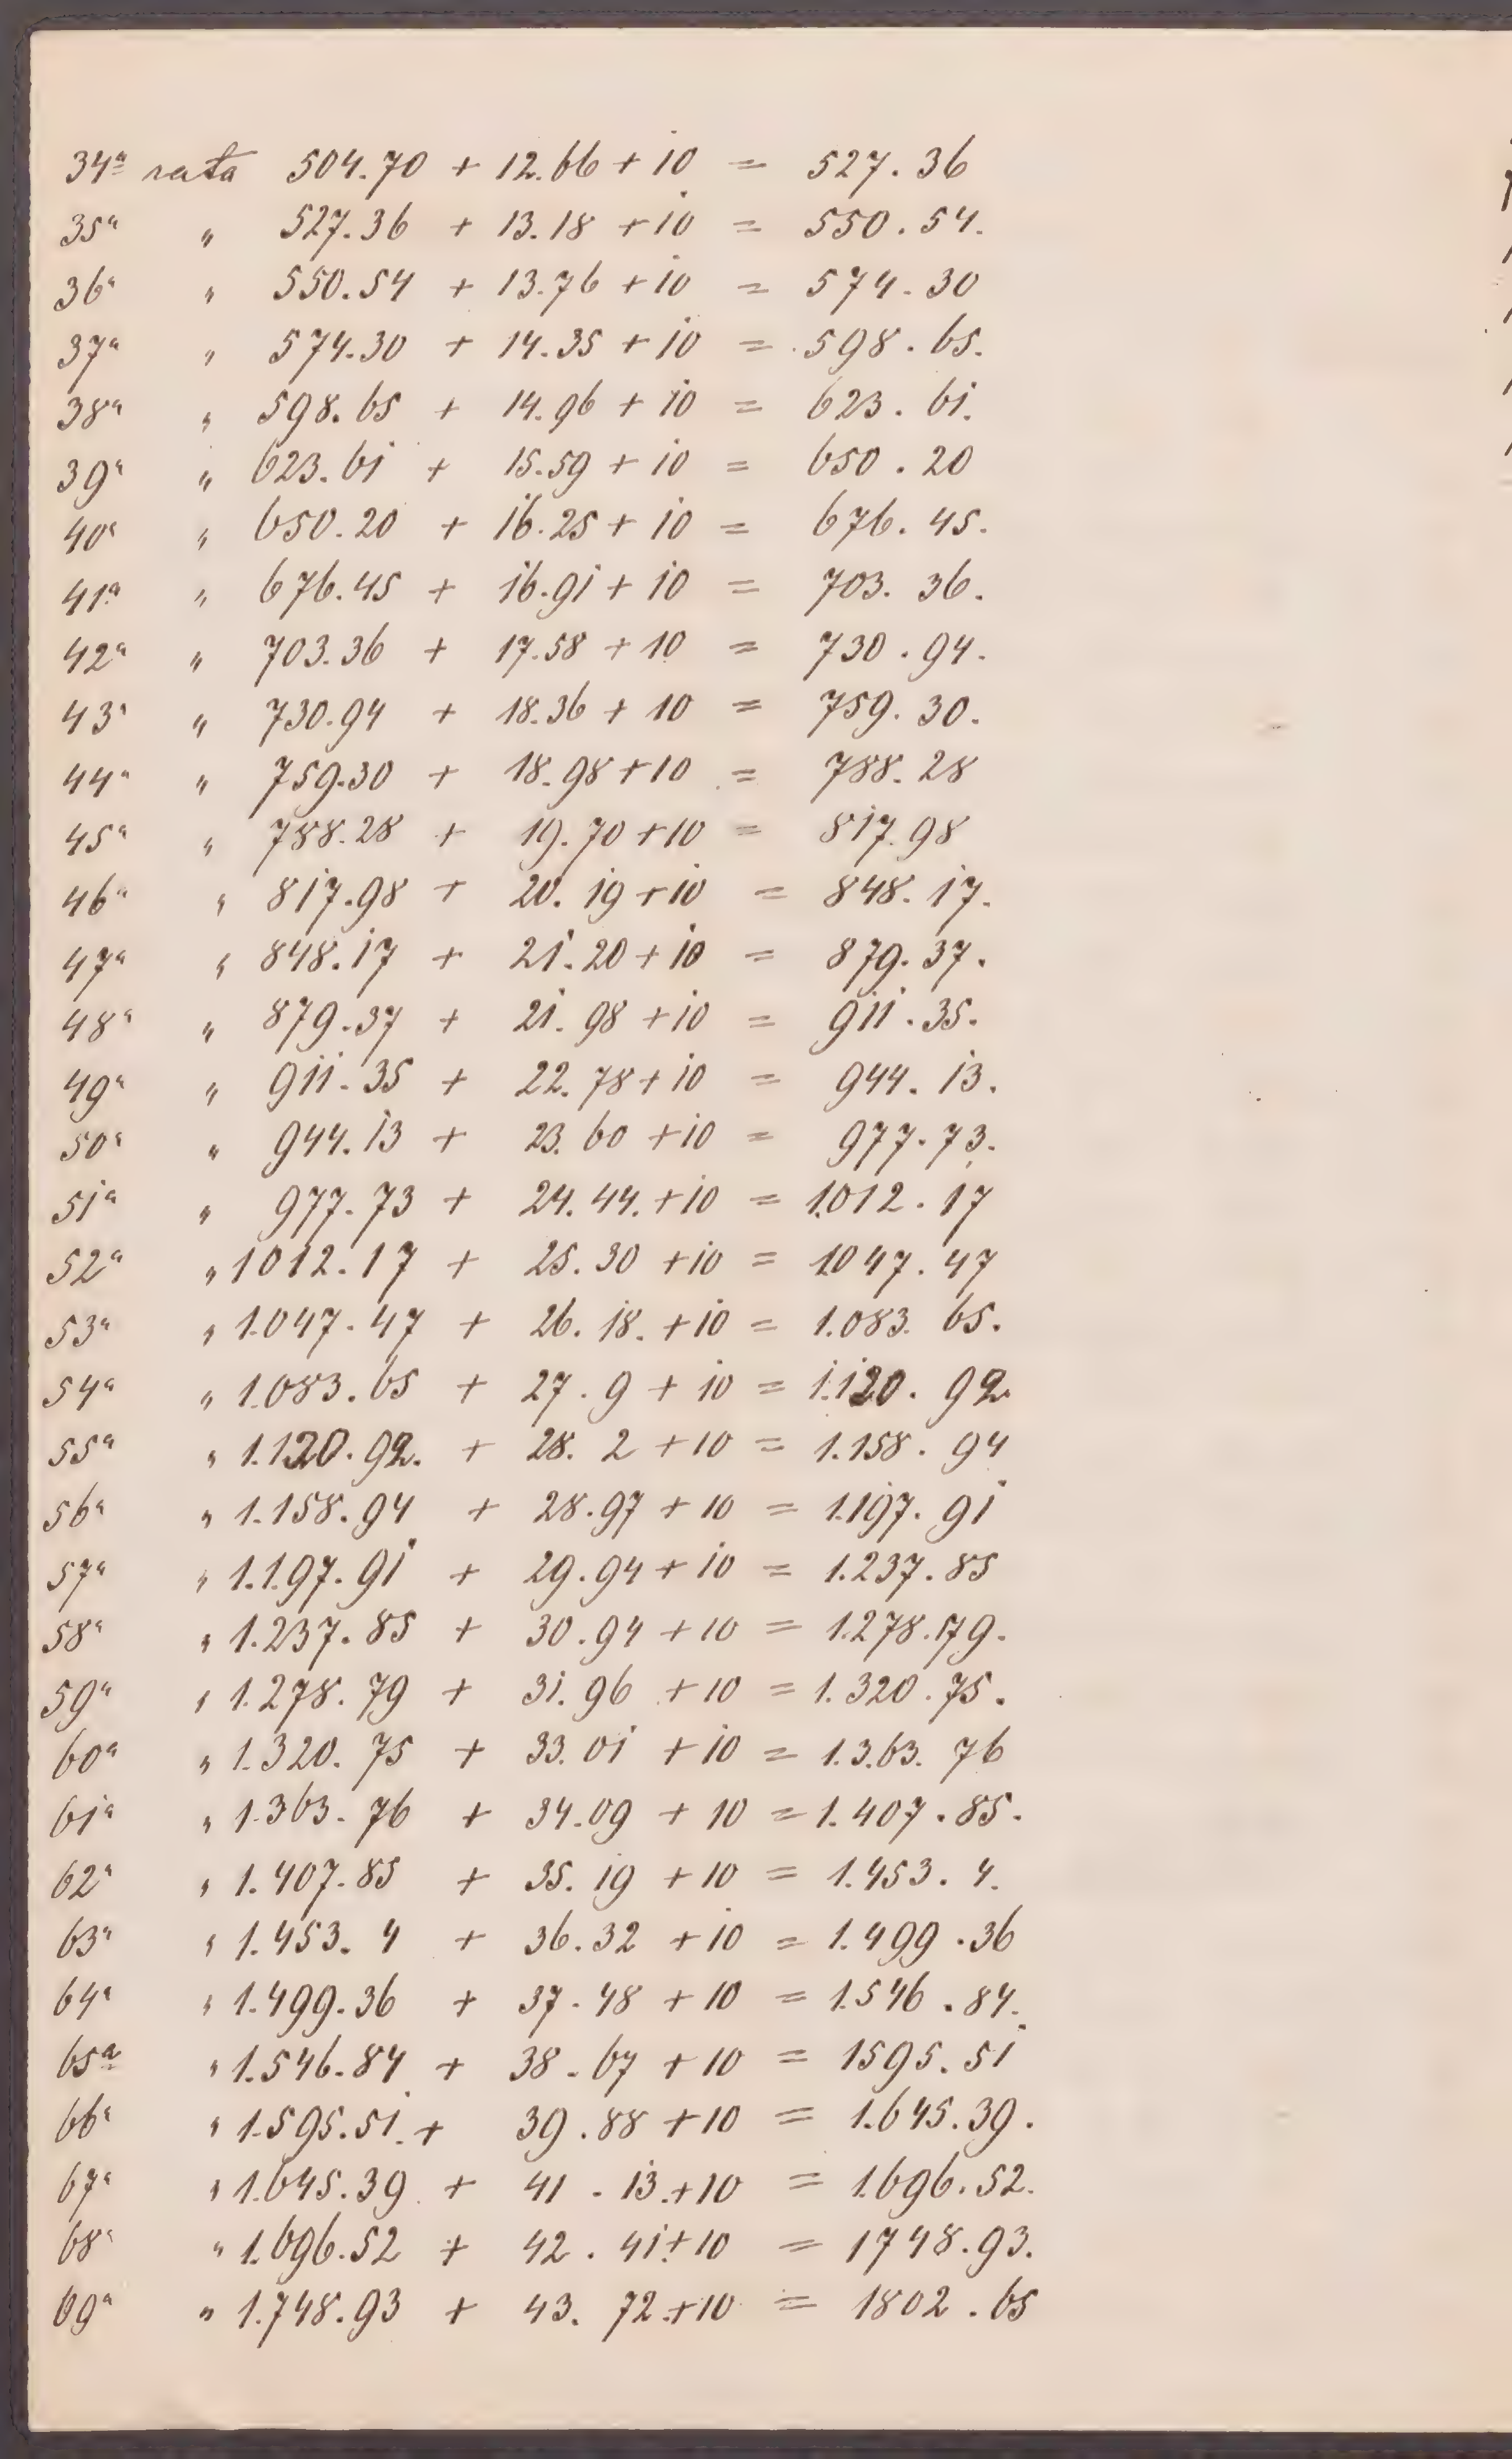 34ª rata 504.70 + 12.66 + 10 = 527.36
35ª " 527.36 + 13.18 + 10 = 550.54.
36ª " 550.54 + 13.76 + 10 = 574.30
37ª " 574.30 + 14.35 + 10 = 598.65.
38ª " 598.65 + 14.96 + 10 = 623.61.
39ª " 623.61 + 15.59 + 10 = 650.20
40ª " 650.20 + 16.25 + 10 = 676.45.
41ª " 676.45 + 16.91 + 10 = 703.36.
42ª " 703.36 + 17.58 + 10 = 730.94.
43ª " 730.94 + 18.36 + 10 = 759.30.
44ª " 759.30 + 18.98 + 10 = 788.28
45ª " 788.28 + 19.70 + 10 = 817.98
46ª " 817.98 + 20.19 + 10 = 848.17.
47ª " 848.17 + 21.20 + 10 = 879.37.
48ª " 879.37 + 21.98 + 10 = 911.35.
49ª " 911.35 + 22.78 + 10 = 944.13.
50ª " 944.13 + 23.60 + 10 = 977.73.
51ª " 977.73 + 24.44. + 10 = 1.012.17
52ª " 1012.17 + 25.30 + 10 = 1.047.47
53ª " 1.047.47 + 26.18. + 10 = 1.083.65.
54ª " 1.083.65 + 27.9 + 10 = 1.120.92.
55ª " 1.120.92. + 28.2 + 10 = 1.158.94
56ª " 1.158.94 + 28.97 + 10 = 1.197.91
57ª " 1.197.91 + 29.94 + 10 = 1.237.85
58ª " 1.237.85 + 30.94 + 10 = 1.278.79.
59ª " 1.278.79 + 31.96 + 10 = 1.320.75.
60ª " 1.320.75 + 33.01 + 10 = 1.3.63.76
61ª " 1.363.76 + 34.09 + 10 = 1.407.85.
62ª " 1.407.85 + 35.19 + 10 = 1.453.4.
63ª " 1.453.4 + 36.32 + 10 = 1.499.36
64ª " 1.499.36 + 37.48 + 10 = 1.546.84.
65ª " 1.546.84 + 38.67 + 10 = 1595.51
66ª " 1.595.51. + 39.88 + 10 = 1.645.39.
67ª " 1.645.39. + 41.13. + 10 = 1.696.52.
68ª " 1.696.52 + 42.41. + 10 = 1748.93.
69ª " 1.748.93 + 43.72. + 10 = 1802.65